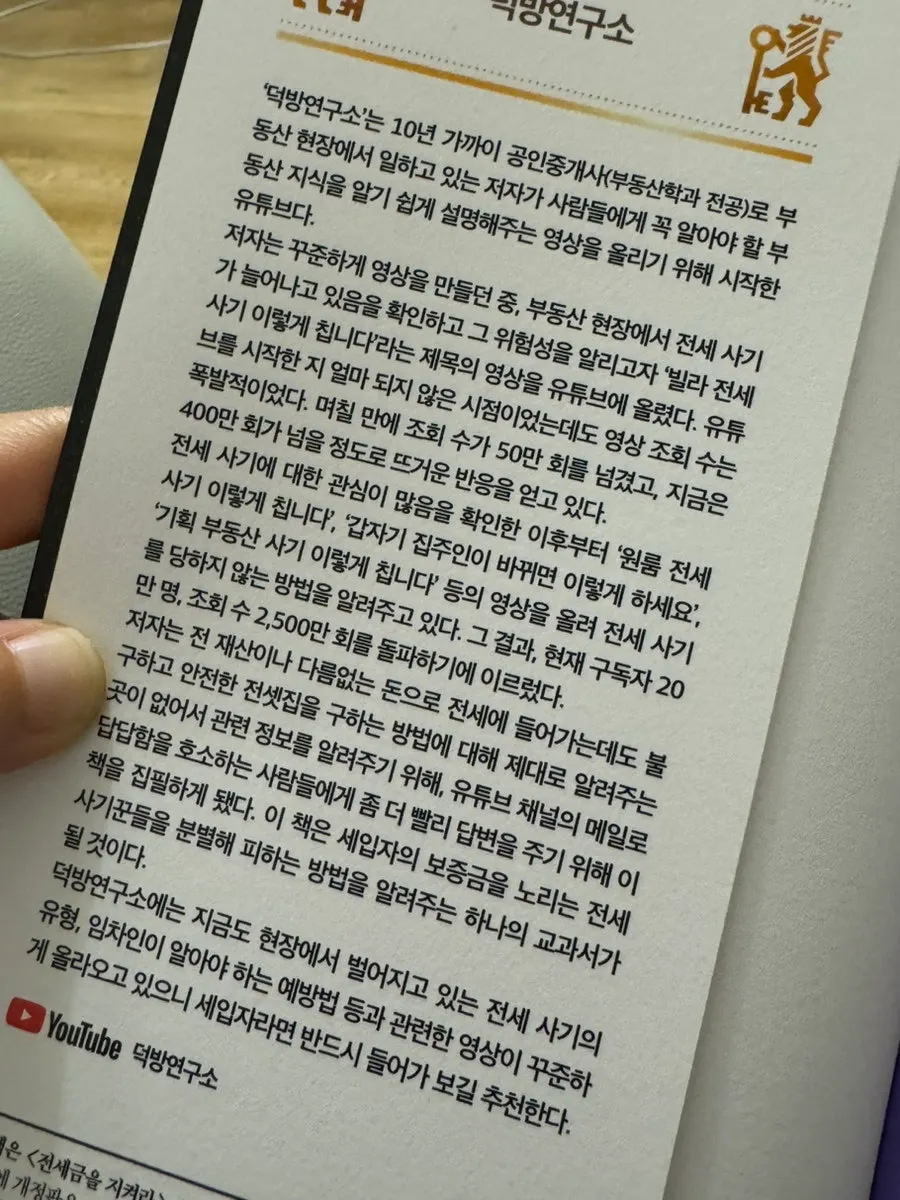 덕방연구소
F
E
'덕방연구소'는 10년 가까이 공인중개사(부동산학과 전공)로 부
동산 현장에서 일하고 있는 저자가 사람들에게 꼭 알아야 할 부
동산 지식을 알기 쉽게 설명해주는 영상을 올리기 위해 시작한
유튜브다.
저자는 꾸준하게 영상을 만들던 중, 부동산 현장에서 전세 사기
가 늘어나고 있음을 확인하고 그 위험성을 알리고자 '빌라 전세
사기 이렇게 칩니다'라는 제목의 영상을 유튜브에 올렸다. 유튜
브를 시작한 지 얼마 되지 않은 시점이었는데도 영상 조회 수는
폭발적이었다. 며칠 만에 조회 수가 50만 회를 넘겼고, 지금은
400만 회가 넘을 정도로 뜨거운 반응을 얻고 있다.
전세 사기에 대한 관심이 많음을 확인한 이후부터 '원룸 전세
사기 이렇게 칩니다', '갑자기 집주인이 바뀌면 이렇게 하세요',
'기획 부동산 사기 이렇게 칩니다' 등의 영상을 올려 전세 사기
를 당하지 않는 방법을 알려주고 있다. 그 결과, 현재 구독자 20
만 명, 조회 수 2,500만 회를 돌파하기에 이르렀다.
저자는 전 재산이나 다름없는 돈으로 전세에 들어가는데도 불
구하고 안전한 전셋집을 구하는 방법에 대해 제대로 알려주는
곳이 없어서 관련 정보를 알려주기 위해, 유튜브 채널의 메일로
답답함을 호소하는 사람들에게 좀 더 빨리 답변을 주기 위해 이
책을 집필하게 됐다. 이 책은 세입자의 보증금을 노리는 전세
사기꾼들을 분별해 피하는 방법을 알려주는 하나의 교과서가
될 것이다.
덕방연구소에는 지금도 현장에서 벌어지고 있는 전세 사기의
유형, 임차인이 알아야 하는 예방법 등과 관련한 영상이 꾸준하
게 올라오고 있으니 세입자라면 반드시 들어가 보길 추천한다.
YouTube 덕방연구소
은 <전세금을 지켜라>
개정판